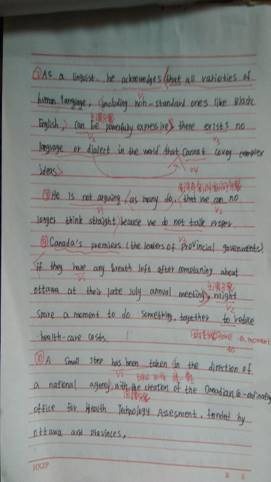 ① As a linguist, he acknowledges (that all varieties of
human language, (including non-standard ones like Black
English,) can be powerfully expressive) there exists no
language or dialect in the world that cannot convey complex
ideas.
② He is not arguing, as many do, (that we can no
longer think straight) because we do not talk proper.
③ Canada's premiers (the leaders of provincial governments)
if they have any breath left after complaining about
Ottawa at their late July annual meeting, might
spare a moment to do something, together, to reduce
health-care costs.
④ A small step has been taken in the direction of
a national agency, with the creation of the Canadian Co-ordinating
office for Health Technology Assessment, funded by
Ottawa and provinces.